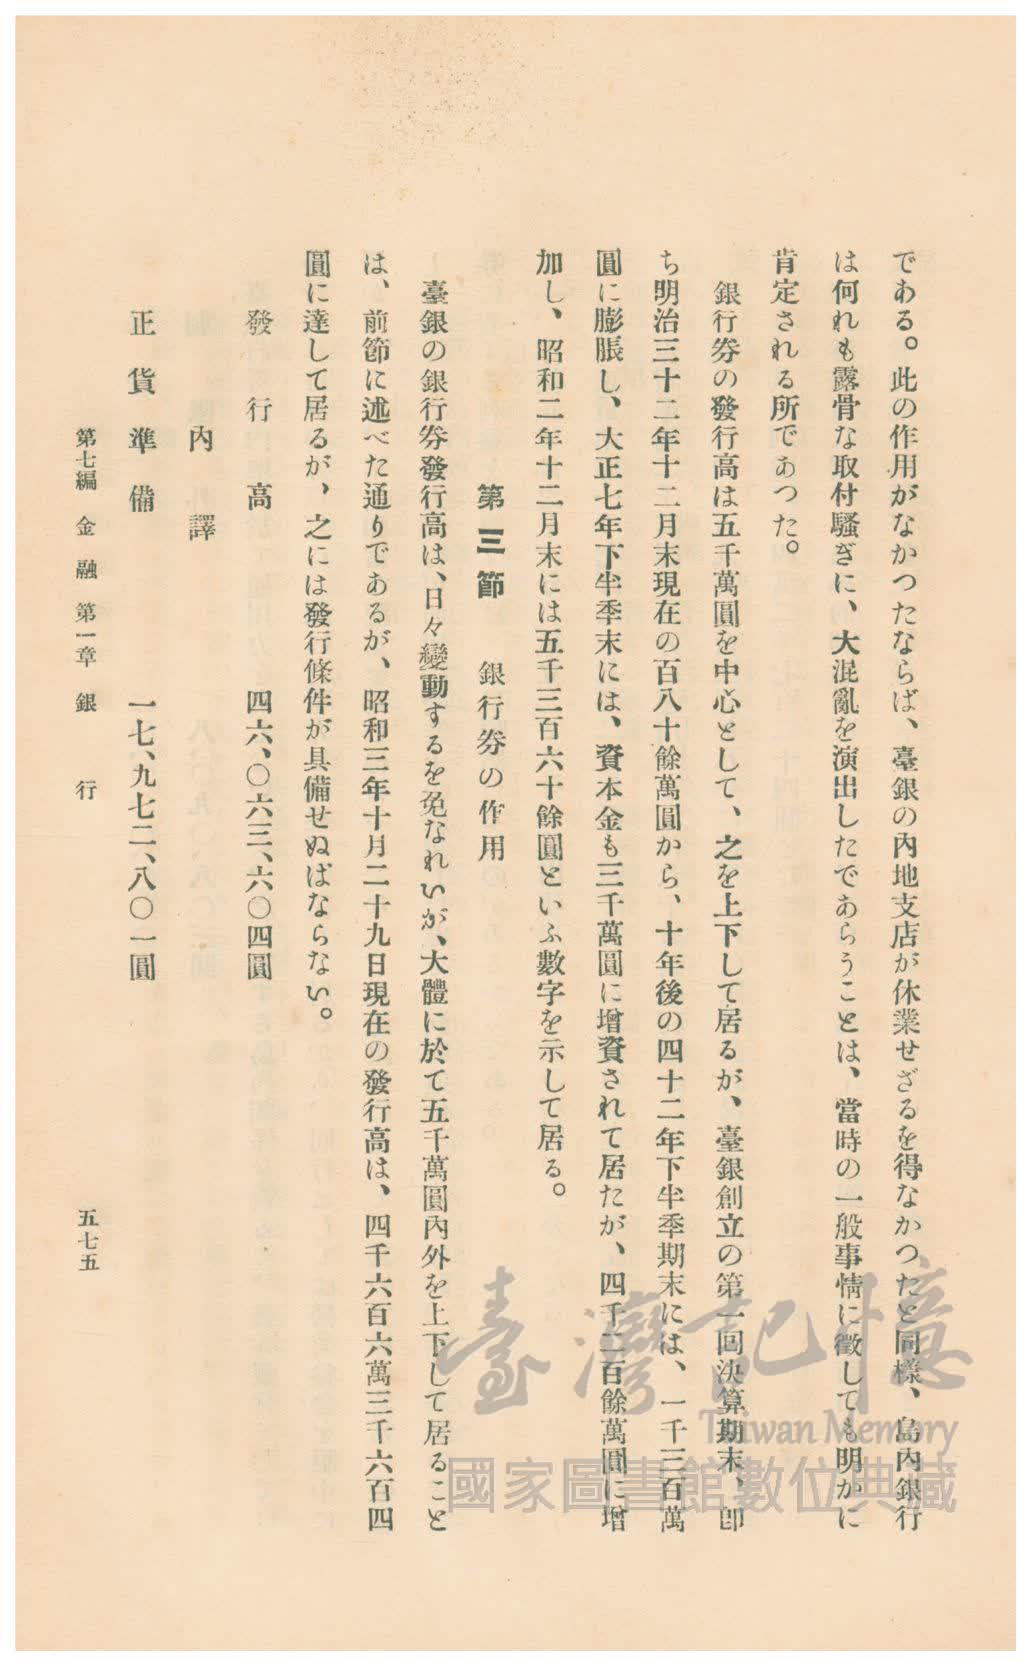 である。此の作用がなかつたならば、臺銀の內地支店が休業せざるを得なかつたと同樣、島內銀行
は何れも露骨な取付騷ぎに、大混亂を演出したであらうことは、當時の一般事情に徵しても明かに
肯定される所であつた。
銀行券の發行高は五千萬圓を中心として、之を上下して居るが、臺銀創立の第一回決算期末、卽
ち明治三十二年十二月末現在の百八十餘萬圓から、十年後の四十二年下半季期末には、一千三百萬
圓に膨脹し、大正七年下半季末には、資本金も三千萬圓に增資されて居たが、四千二百餘萬圓に增
加し、昭和二年十二月末には五千三百六十餘圓といふ數字を示して居る。
第三節 銀行券の作用
臺銀の銀行券發行高は、日々變動するを免なれいが、大體に於て五千萬圓內外を上下して居ること
は、前節に述べた通りであるが、昭和三年十月二十九日現在の發行高は、四千六百六萬三千六百四
圓に達して居るが、之には發行條件が具備せぬばならない。
發行高 四六、〇六三、六〇四圓
內譯
正貨準備 一七、九七二、八〇一圓
第七編 金融 第一章 銀行
五七五
臺灣記憶
Taiwan Memory
國家圖書館數位典藏